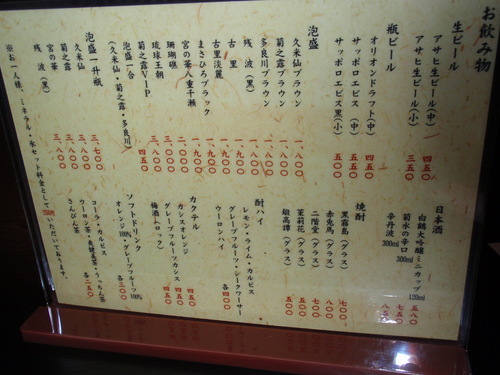 お飲み物
生ビール
アサヒ生ビール(中) 四五〇
アサヒ生ビール(小) 三五〇
瓶ビール
オリオンドラフト(中) 四五〇
サッポロエビス(中) 五〇〇
サッポロエビス黒(小) 五〇〇
泡盛
久米仙ブラウン 一、八〇〇
菊之露ブラウン 一、八〇〇
多良川ブラウン 一、八〇〇
残波(黒) 一、八〇〇
古里 一、九〇〇
古里淡麗 一、九〇〇
まさひろブラック 一、九〇〇
宮の華八重千瀬 二、〇〇〇
珊瑚礁 三、〇〇〇
琉球王朝 三、八〇〇
菊之露VIP 三、八〇〇
泡盛一合 四五〇
(久米仙・菊之露・多良川)
泡盛一升瓶
久米仙 三、七〇〇
菊之露 三、八〇〇
宮の華 三、八〇〇
残波(黒) 三、八〇〇
※お一人様、ミネラル・氷セット料金として250円いただいております。
日本酒
白鶴大吟醸ミニカップ 120ml 五八〇
菊水の辛口 300ml 七五〇
辛丹波 300ml
焼酎
黒霧島(グラス) 七〇〇
赤兎馬(グラス) 八〇〇
二階堂(グラス) 七〇〇
茉莉花(グラス) 五〇〇
鍛高譚(グラス) 五〇〇
酎ハイ
レモン・ライム・カルピス
グレープフルーツ・シークワーサー
ウーロンハイ 各四〇〇
カクテル
カシスオレンジ 四五〇
グレープフルーツカシス 四五〇
梅酒(ロック) 四五〇
ソフトドリンク
オレンジ100%・グレープフルーツ100% 各三〇〇
コーラ・カルピス
ウーロン茶・爽健美茶・うっちん茶
さんぴん茶 各二五〇